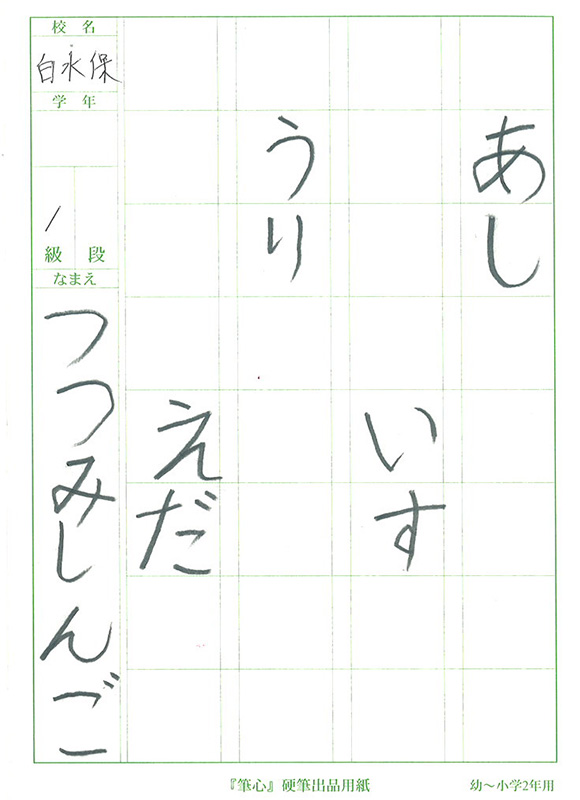 あし
いす
うり
えだ
校名
白永保
学年
段
級
なまえ
つつみしんご
『筆心』硬筆出品用紙
幼〜小学2年用